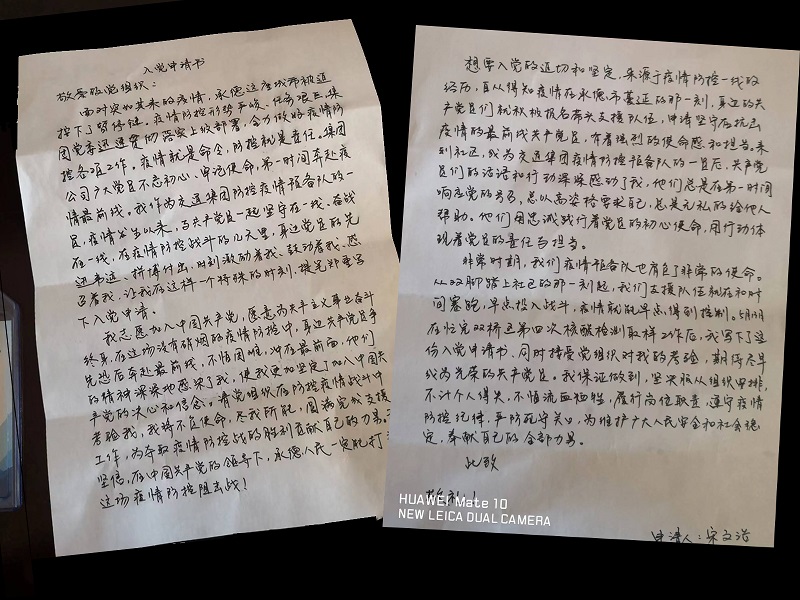 入党申请书
敬爱的党组织：
面对突如其来的疫情，承德这座城市被迫
按下了暂停键。疫情防控形势严峻、任务艰巨，集
团党委迅速贯彻落实上级部署，全力做好疫情防
控各项工作。疫情就是命令，防控就是责任。集团
公司广大党员不忘初心、牢记使命，第一时间奔赴疫
情最前线。我作为交通集团防控疫情预备队的一
员，疫情发生以来，与共产党员一起坚守在一线、奋战
在一线，在疫情防控战斗的几天里，身边党员的先
进事迹、拼搏付出，时刻激励着我、鼓动着我、感
写着我，让我在这样一个特殊的时刻，提笔郑重写
下入党申请。
我志愿加入中国共产党，愿意为共产主义事业奋斗
终身，在这场没有硝烟的疫情防控中，身边共产党员争
先恐后奔赴最前线，不惧困难，冲在最前面，他们
的精神深深地感染了我，使我更加坚定了加入中国共
产党的决心和信念。请党组织在防控疫情战斗中
考验我，我将不负使命，尽我所能，圆满完成支援
工作，为夺取疫情防控战的胜利贡献自己的力量。
坚信，在中国共产党的领导下，承德人民一定能打
这场疫情防控阻击战！
想要入党的迫切和坚定，来源于疫情防控一线的
经历，直从得知疫情在承德市蔓延的那一刻，身边的共
产党员们就积极报名去支援队伍，申请坚守在抗击
疫情的最前线共产党员，有着强烈的使命感和担当。来
到社区，成为交通集团疫情防控预备队的一员后，共产党
员们的话语和行动深深感动了我，他们总是在第一时间
响应党的号召，总以高姿格要求自己，总是无私的给他人
帮助。他们用忠诚践行着党员的初心使命，用行动体
现着党员的责任与担当。
非常时期，我们疫情预备队也肩负了非常的使命。
从双脚踏上社区的那一刻起，我们支援队伍就在和时
间赛跑，早点投入战斗，疫情就能早点得到控制。
在忙完双桥区第四次核酸检测取样工作后，我写下了这
份入党申请书，同时接受党组织对我的考验，期待尽早
成为光荣的共产党员。我保证做到，坚决服从组织安排，
不计个人得失，不惜流血牺牲，履行岗位职责，遵守疫情
防控纪律，严防死守关口，为维护广大人民安全和社会稳
定，奉献自己的全部力量。
此致
敬礼！
申请人：宋文浩
HUAWEI Mate 10
NEW LEICA DUAL CAMERA